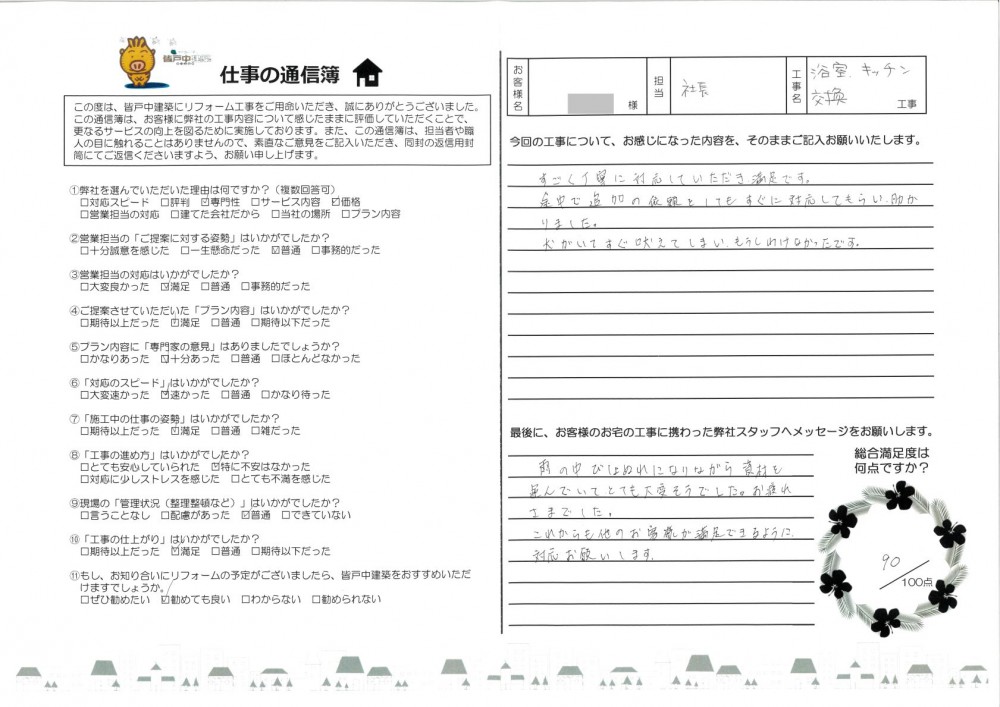 皆戸中
仕事の通信簿
この度は、皆戸中建築にリフォーム工事をご用命いただき、誠にありがとうございました。
この通信簿は、お客様に弊社の工事内容について感じたままに評価していただくことで、
更なるサービスの向上を図るために実施しております。また、この通信簿は、担当者や職
人の目に触れることはありませんので、素直なご意見をご記入いただき、同封の返信用封
筒にてご返信くださいますよう、お願い申し上げます。
①弊社を選んでいただいた理由は何ですか？（複数回答可）
□対応スピード □評判 ☑専門性 □サービス内容 ☑価格
□営業担当の対応 □建てた会社だから □当社の場所 □プラン内容
②営業担当の「ご提案に対する姿勢」はいかがでしたか？
□十分誠意を感じた □一生懸命だった ☑普通 □事務的だった
③営業担当の対応はいかがでしたか？
□大変良かった ☑満足 □普通 □事務的だった
④ご提案させていただいた「プラン内容」はいかがでしたか？
□期待以上だった ☑満足 □普通 □期待以下だった
⑤プラン内容に「専門家の意見」はありましたでしょうか？
□かなりあった ☑十分あった □普通 □ほとんどなかった
⑥「対応のスピード」はいかがでしたか？
□大変速かった ☑速かった □普通 □かなり待った
⑦「施工中の仕事の姿勢」はいかがでしたか？
□期待以上だった ☑満足 □普通 □雑だった
⑧「工事の進め方」はいかがでしたか？
□とても安心していられた ☑特に不安はなかった
□対応に少しストレスを感じた □とても不満を感じた
⑨現場の「管理状況（整理整頓など）」はいかがでしたか？
□言うことなし □配慮があった ☑普通 □できていない
⑩「工事の仕上がり」はいかがでしたか？
□期待以上だった ☑満足 □普通 □期待以下だった
⑪もし、お知り合いにリフォームの予定がございましたら、皆戸中建築をおすすめいただ
けますでしょうか。
□ぜひ勧めたい ☑勧めても良い □わからない □勧められない
お客様名 様 担当 社長 工事名 浴室、キッチン
交換 工事
今回の工事について、お感じになった内容を、そのままご記入お願いいたします。
すごく丁寧に対応していただき満足です。
途中で追加の依頼としてもすぐに対応してもらい、助か
りました。
犬がいてすぐ吠えてしまい もうしわけなかったです。
最後に、お客様のお宅の工事に携わった弊社スタッフへメッセージをお願いします。
雨の中びしょぬれになりながら 資材を
運んでいてとても大変そうでした。お疲れ
さまでした。
これからも他のお客様が満足できるように、
対応お願いします。
総合満足度は
何点ですか？
90
100点